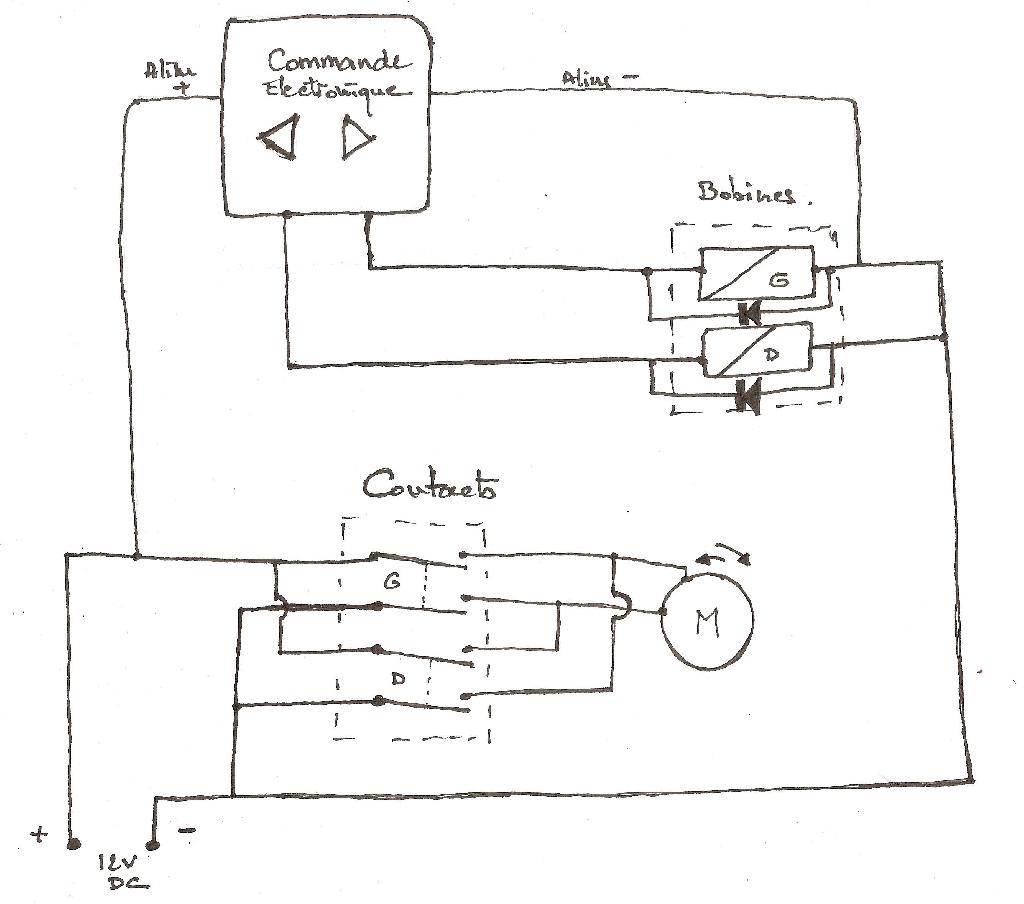 Commande
Electronique
Alim
+
Alim -
Bobines.
G
D
Contacts
G
M
D
+
-
12V
DC